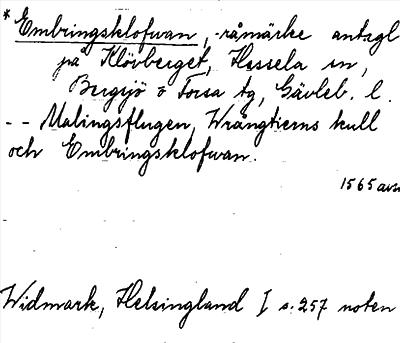 * Embringsklofwan, råmärke antagl
på Klövberget, Hessela sn,
Bergsjö o Forsa tg, Gävleb. l.
-- Malingsflugen, Wrångtierns kull
och Embringsklofwan.
1565 avs
Widmark, Helsingland I s. 257 noten